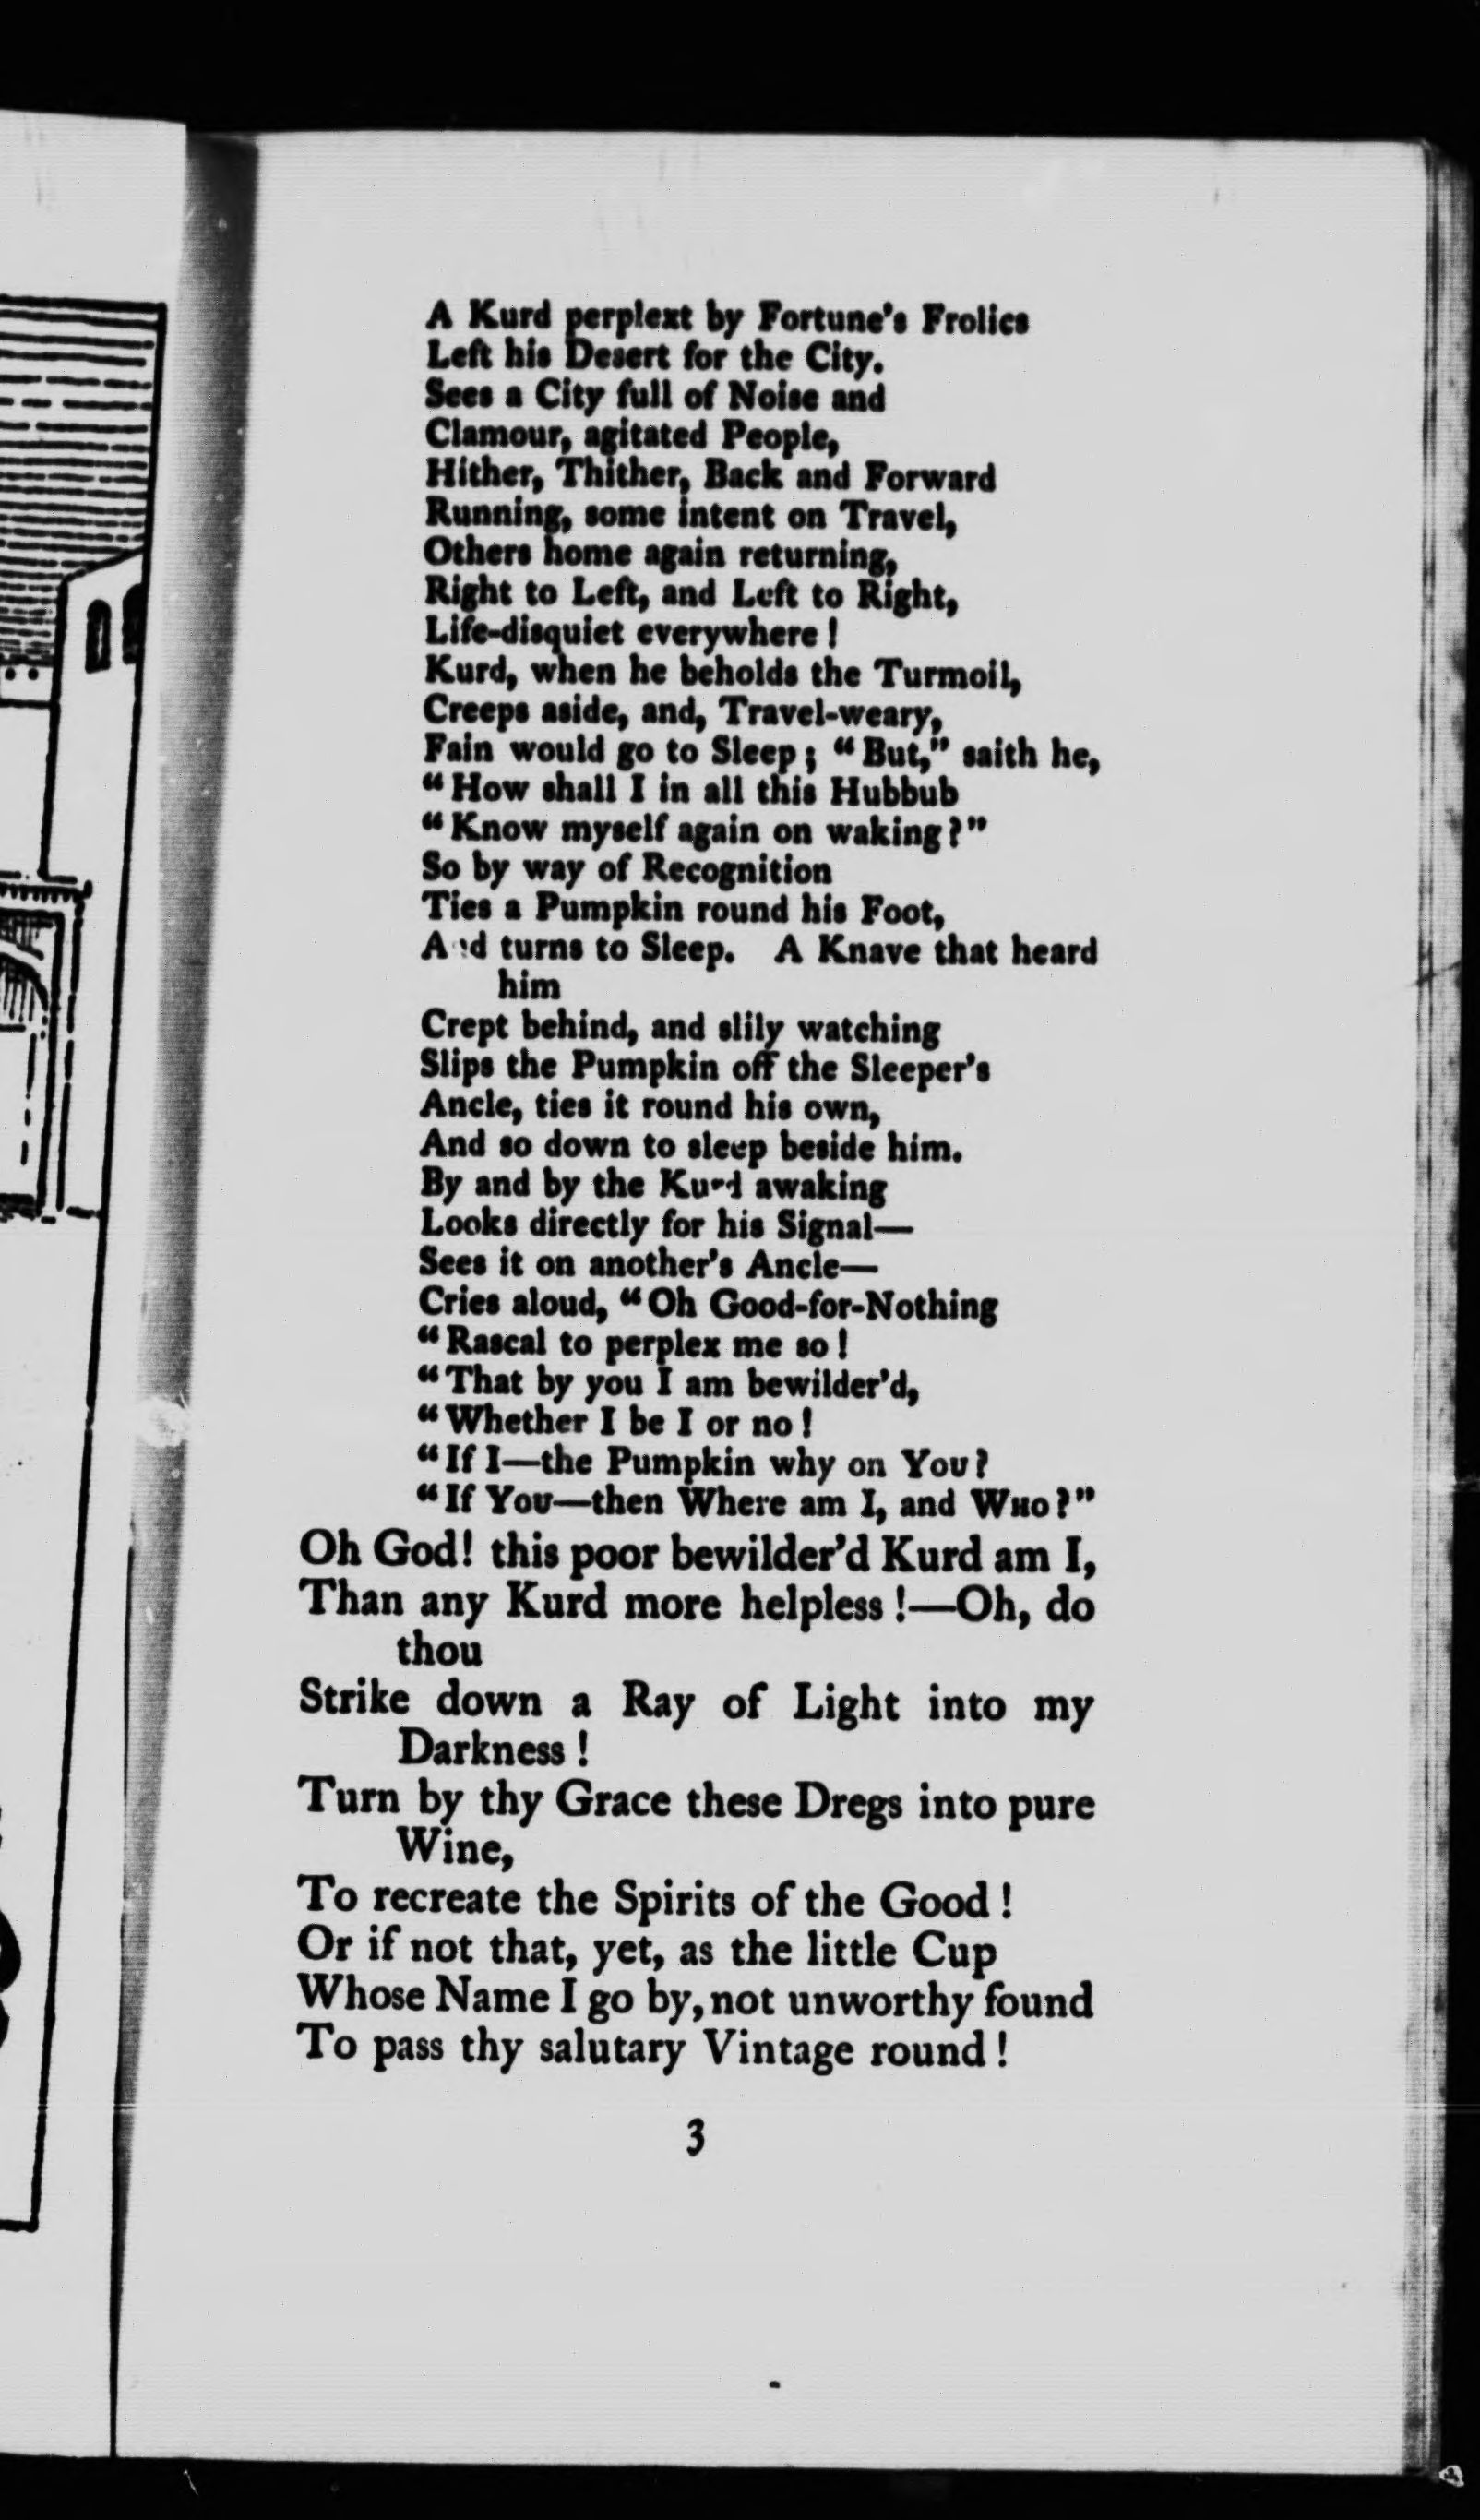 A Kurd perplext by Fortune's Frolics
Left his Desert for the City.
Sees a City full of Noise and
Clamour, agitated People,
Hither, Thither, Back and Forward
Running, some intent on Travel,
Others home again returning,
Right to Left, and Left to Right,
Life-disquiet everywhere!
Kurd, when he beholds the Turmoil,
Creeps aside, and, Travel-weary,
Fain would go to Sleep; "But," saith he,
"How shall I in all this Hubbub
"Know myself again on waking?"
So by way of Recognition
Ties a Pumpkin round his Foot,
And turns to Sleep. A Knave that heard
him
Crept behind, and slily watching
Slips the Pumpkin off the Sleeper's
Ancle, ties it round his own,
And so down to sleep beside him.
By and by the Kurd awaking
Looks directly for his Signal—
Sees it on another's Ancle—
Cries aloud, "Oh Good-for-Nothing
"Rascal to perplex me so!
"That by you I am bewilder'd,
"Whether I be I or no!
"If I—the Pumpkin why on You?
"If You—then Where am I, and Who?"
Oh God! this poor bewilder'd Kurd am I,
Than any Kurd more helpless!—Oh, do
thou
Strike down a Ray of Light into my
Darkness!
Turn by thy Grace these Dregs into pure
Wine,
To recreate the Spirits of the Good!
Or if not that, yet, as the little Cup
Whose Name I go by, not unworthy found
To pass thy salutary Vintage round!
3